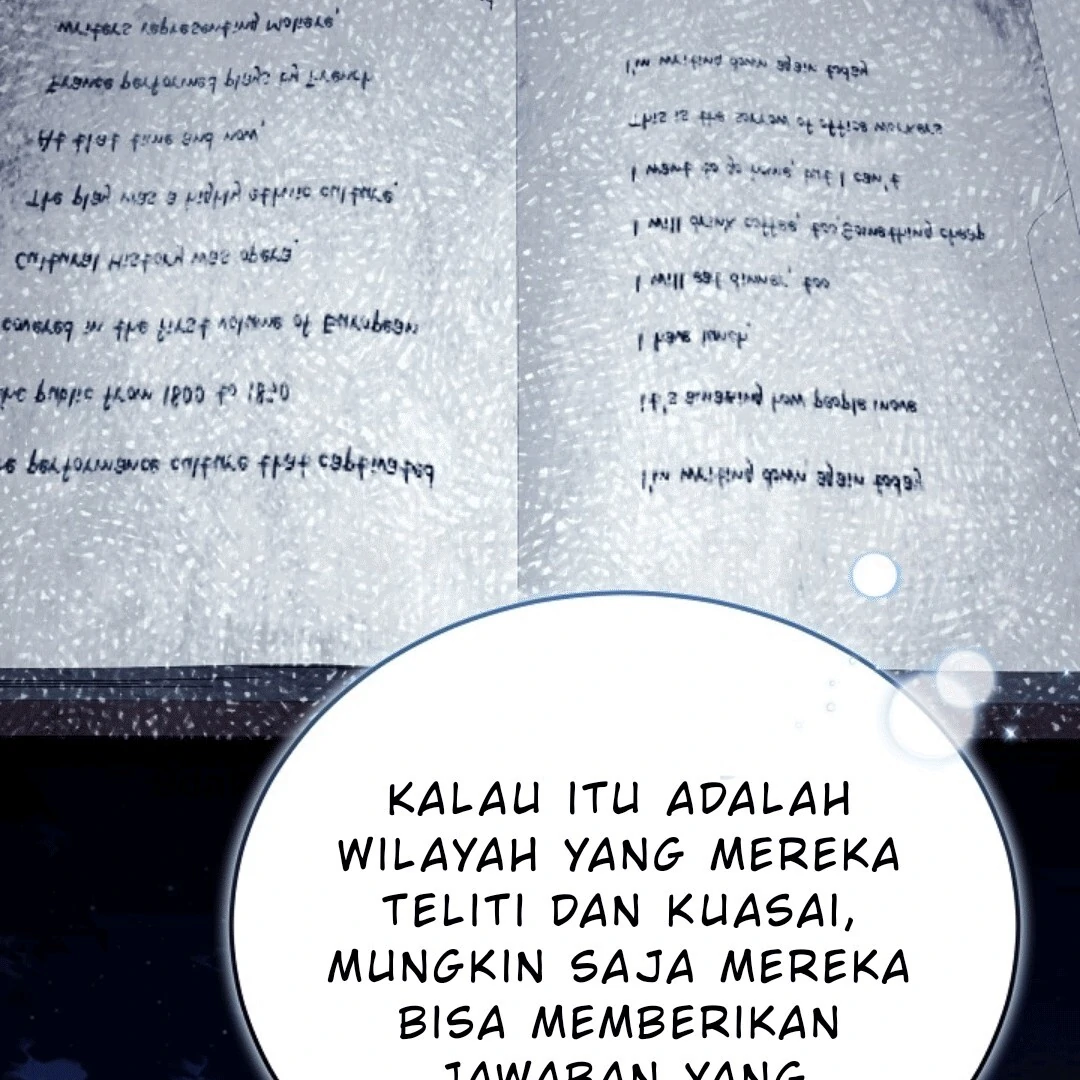 e performance culture that captivated
he public from 1800 to 1850
covered in the first volume of European
Cultural History was opera.
The play was a highly ethnic culture.
At that time and now,
France performed plays by French
writers representing Moliere,
I'm writing down again today
It's amazing how people move
I have lunch.
I will eat dinner, too
I will drink coffee, too.Something cheap
I want to go home, but I can't
This is the sorrow of office workers
I'm writing down again today
KALAU ITU ADALAH
WILAYAH YANG MEREKA
TELITI DAN KUASAI,
MUNGKIN SAJA MEREKA
BISA MEMBERIKAN
JAWABAN YANG